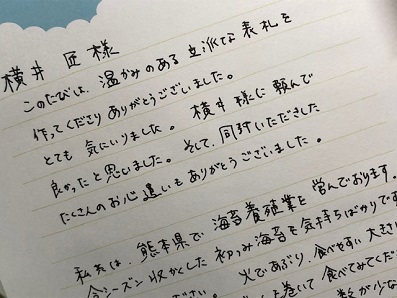 横井 匠 様
このたびは、温かみのある立派な表札を
作ってくださりありがとうございました。
とても気にいりました。横井様に頼んで
良かったと思いました。そして、同封いただきました
たくさんのお心遣いもありがとうございました。
私共は、熊本県で海苔養殖業を営んでおります。
今シーズン収かくした初つみ海苔を気持ちばかりです
火であぶり、食べやすい大きさ
巻いて食べてみてくだ